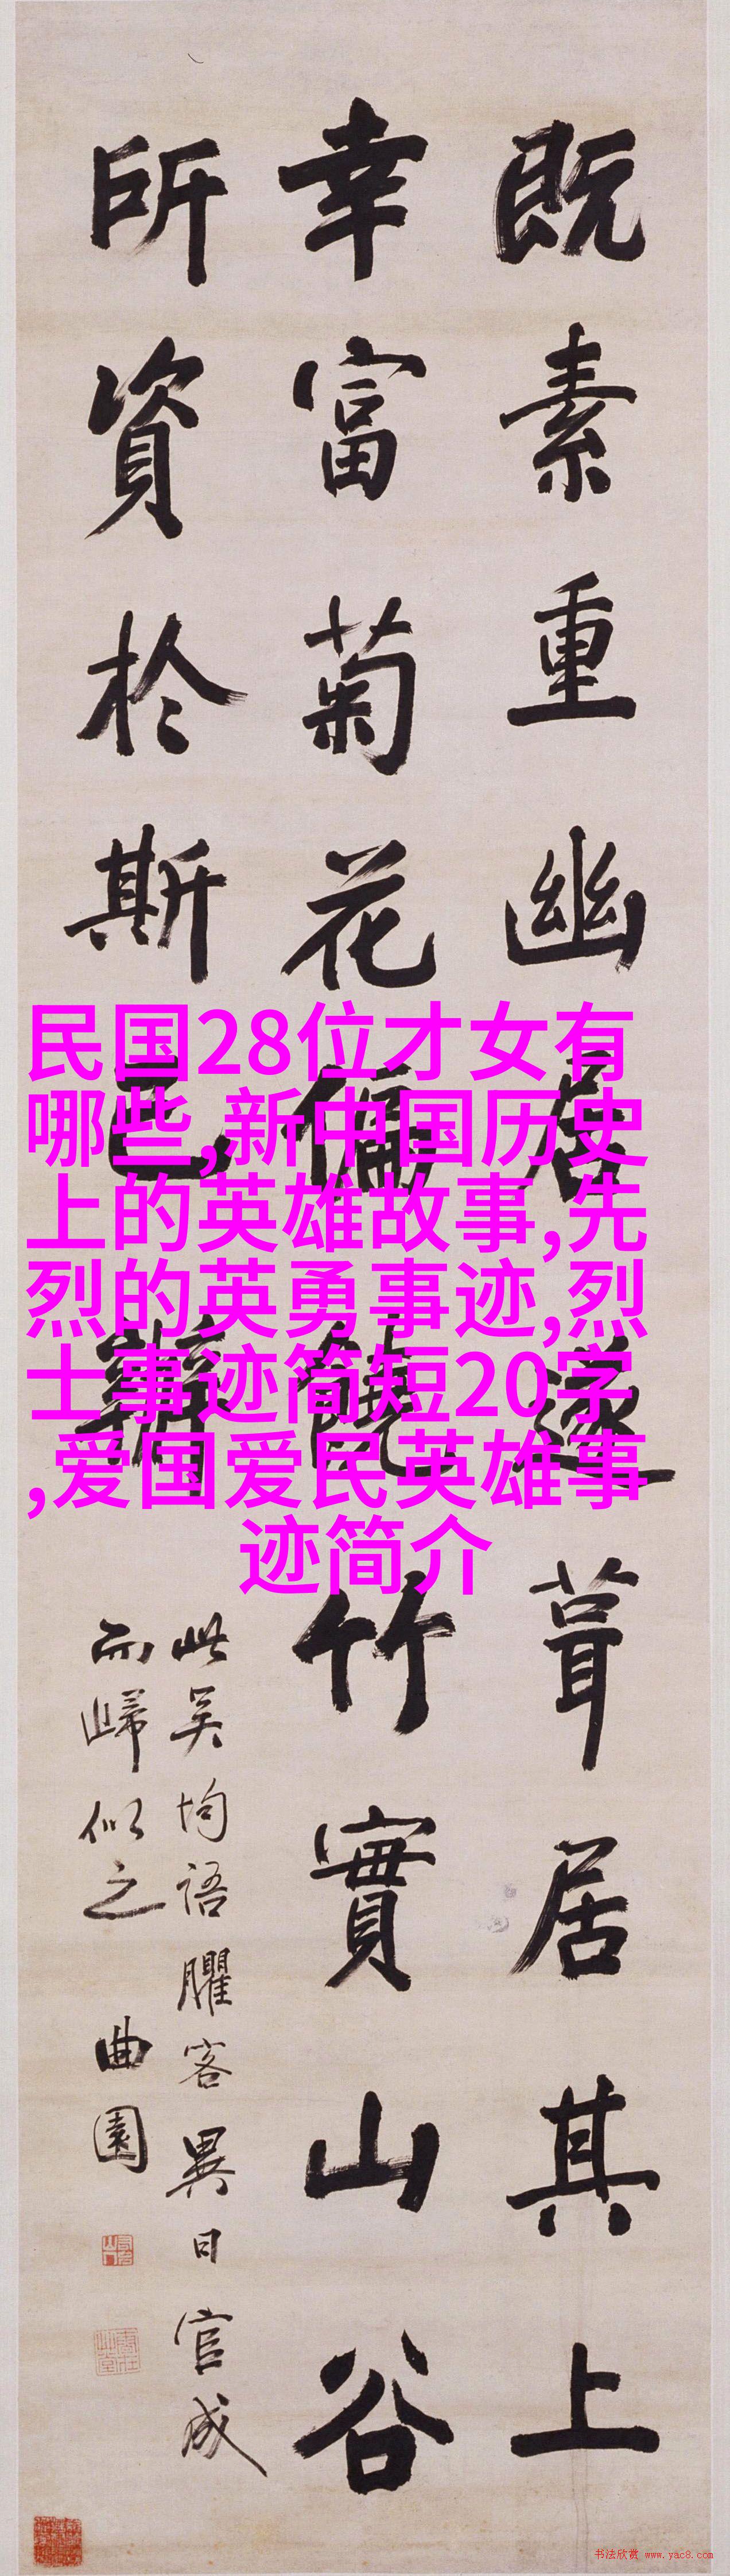 既素重幽居遂葺居其上
幸富菊花偏饒竹實山谷
所資於斯已辦
此吴均語臞客異日官成
而歸似之
曲園
民国28位才女有
哪些,新中国历史
上的英雄故事,先
烈的英勇事迹,烈
士事迹简短20字
,爱国爱民英雄事
迹简介
书法欣赏 www.yac8.com